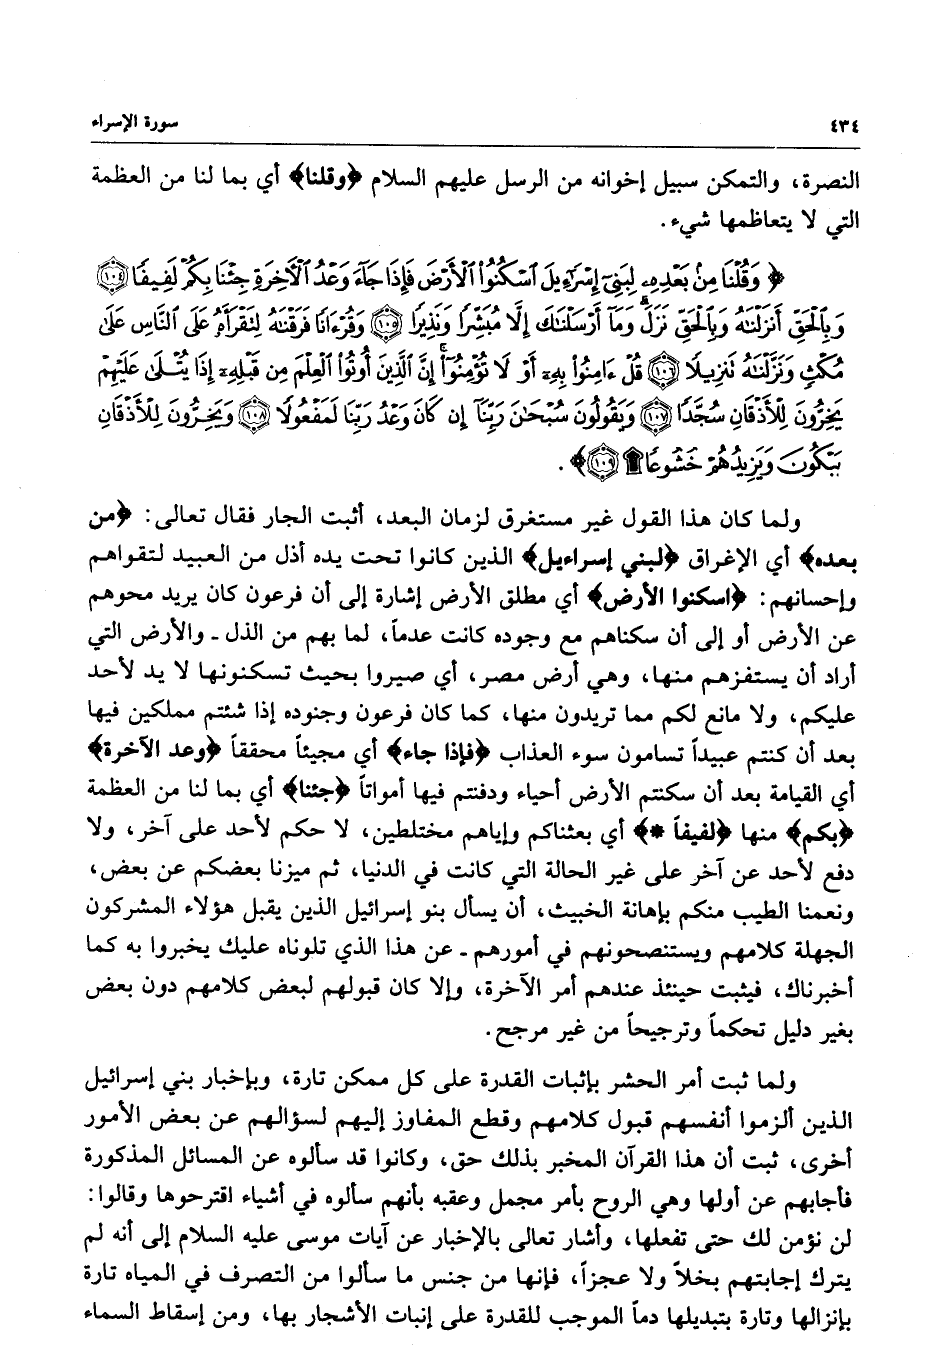 ٤٣٤ سورة الإسراء
النصرة، والتمكن سبيل إخوانه من الرسل عليهم السلام ﴿وقلنا﴾ أي بما لنا من العظمة
التي لا يتعاظمها شيء.
﴿ وَقُلْنَا مِنْ بَعْدِهِۦ لِبَنِىٓ إِسْرَٰٓءِيلَ ٱسْكُنُوا۟ ٱلْأَرْضَ فَإِذَا جَآءَ وَعْدُ ٱلْءَاخِرَةِ جِئْنَا بِكُمْ لَفِيفًا ١٠٤
وَبِٱلْحَقِّ أَنزَلْنَٰهُ وَبِٱلْحَقِّ نَزَلَ ۗ وَمَآ أَرْسَلْنَٰكَ إِلَّا مُبَشِّرًا وَنَذِيرًا ١٠٥ وَقُرْءَانًا فَرَقْنَٰهُ لِتَقْرَأَهُۥ عَلَى ٱلنَّاسِ عَلَىٰ
مُكْثٍ وَنَزَّلْنَٰهُ تَنزِيلًا ١٠٦ قُلْ ءَامِنُوا۟ بِهِۦٓ أَوْ لَا تُؤْمِنُوٓا۟ ۚ إِنَّ ٱلَّذِينَ أُوتُوا۟ ٱلْعِلْمَ مِن قَبْلِهِۦٓ إِذَا يُتْلَىٰ عَلَيْهِمْ
يَخِرُّونَ لِلْأَذْقَانِ سُجَّدًا ١٠٧ وَيَقُولُونَ سُبْحَٰنَ رَبِّنَآ إِن كَانَ وَعْدُ رَبِّنَا لَمَفْعُولًا ١٠٨ وَيَخِرُّونَ لِلْأَذْقَانِ
يَبْكُونَ وَيَزِيدُهُمْ خُشُوعًا ۩ ١٠٩ ﴾ .
ولما كان هذا القول غير مستغرق لزمان البعد، أثبت الجار فقال تعالى: ﴿من
بعده﴾ أي الإغراق ﴿لبني إسراءيل﴾ الذين كانوا تحت يده أذل من العبيد لتقواهم
وإحسانهم: ﴿اسكنوا الأرض﴾ أي مطلق الأرض إشارة إلى أن فرعون كان يريد محوهم
عن الأرض أو إلى أن سكناهم مع وجوده كانت عدماً، لما بهم من الذل ـ والأرض التي
أراد أن يستفزهم منها، وهي أرض مصر، أي صيروا بحيث تسكنونها لا يد لأحد
عليكم، ولا مانع لكم مما تريدون منها، كما كان فرعون وجنوده إذا شئتم مملكين فيها
بعد أن كنتم عبيداً تسامون سوء العذاب ﴿فإذا جاء﴾ أي مجيئاً محققاً ﴿وعد الآخرة﴾
أي القيامة بعد أن سكنتم الأرض أحياء ودفنتم فيها أمواتاً ﴿جئنا﴾ أي بما لنا من العظمة
﴿بكم﴾ منها ﴿لفيفاً *﴾ أي بعثناكم وإياهم مختلطين، لا حكم لأحد على آخر، ولا
دفع لأحد عن آخر على غير الحالة التي كانت في الدنيا، ثم ميزنا بعضكم عن بعض،
ونعمنا الطيب منكم بإهانة الخبيث، أن يسأل بنو إسرائيل الذين يقبل هؤلاء المشركون
الجهلة كلامهم ويستنصحونهم في أمورهم ـ عن هذا الذي تلوناه عليك يخبروا به كما
أخبرناك، فيثبت حينئذ عندهم أمر الآخرة، وإلا كان قبولهم لبعض كلامهم دون بعض
بغير دليل تحكماً وترجيحاً من غير مرجح.
ولما ثبت أمر الحشر بإثبات القدرة على كل ممكن تارة، وبإخبار بني إسرائيل
الذين ألزموا أنفسهم قبول كلامهم وقطع المفاوز إليهم لسؤالهم عن بعض الأمور
أخرى، ثبت أن هذا القرآن المخبر بذلك حق، وكانوا قد سألوه عن المسائل المذكورة
فأجابهم عن أولها وهي الروح بأمر مجمل وعقبه بأنهم سألوه في أشياء اقترحوها وقالوا:
لن نؤمن لك حتى تفعلها، وأشار تعالى بالإخبار عن آيات موسى عليه السلام إلى أنه لم
يترك إجابتهم بخلاً ولا عجزاً، فإنها من جنس ما سألوا من التصرف في المياه تارة
بإنزالها وتارة بتبديلها دماً الموجب للقدرة على إنبات الأشجار بها، ومن إسقاط السماء